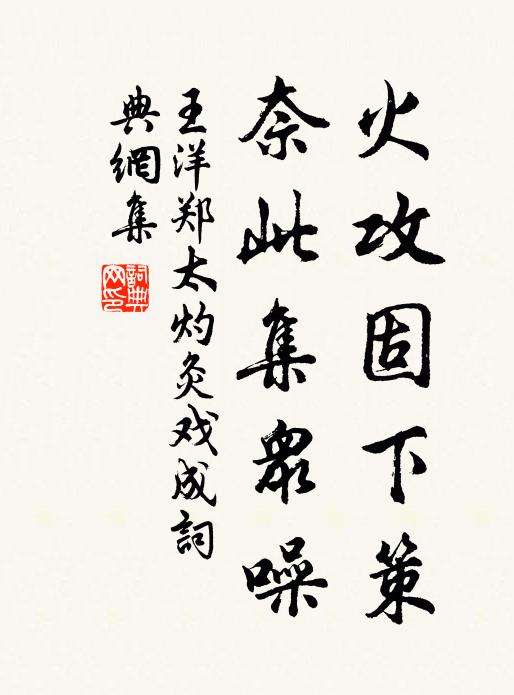 火攻固下策
奈此集衆噪
王洋郑太灼灸戏成詞
典網集
詞典网印